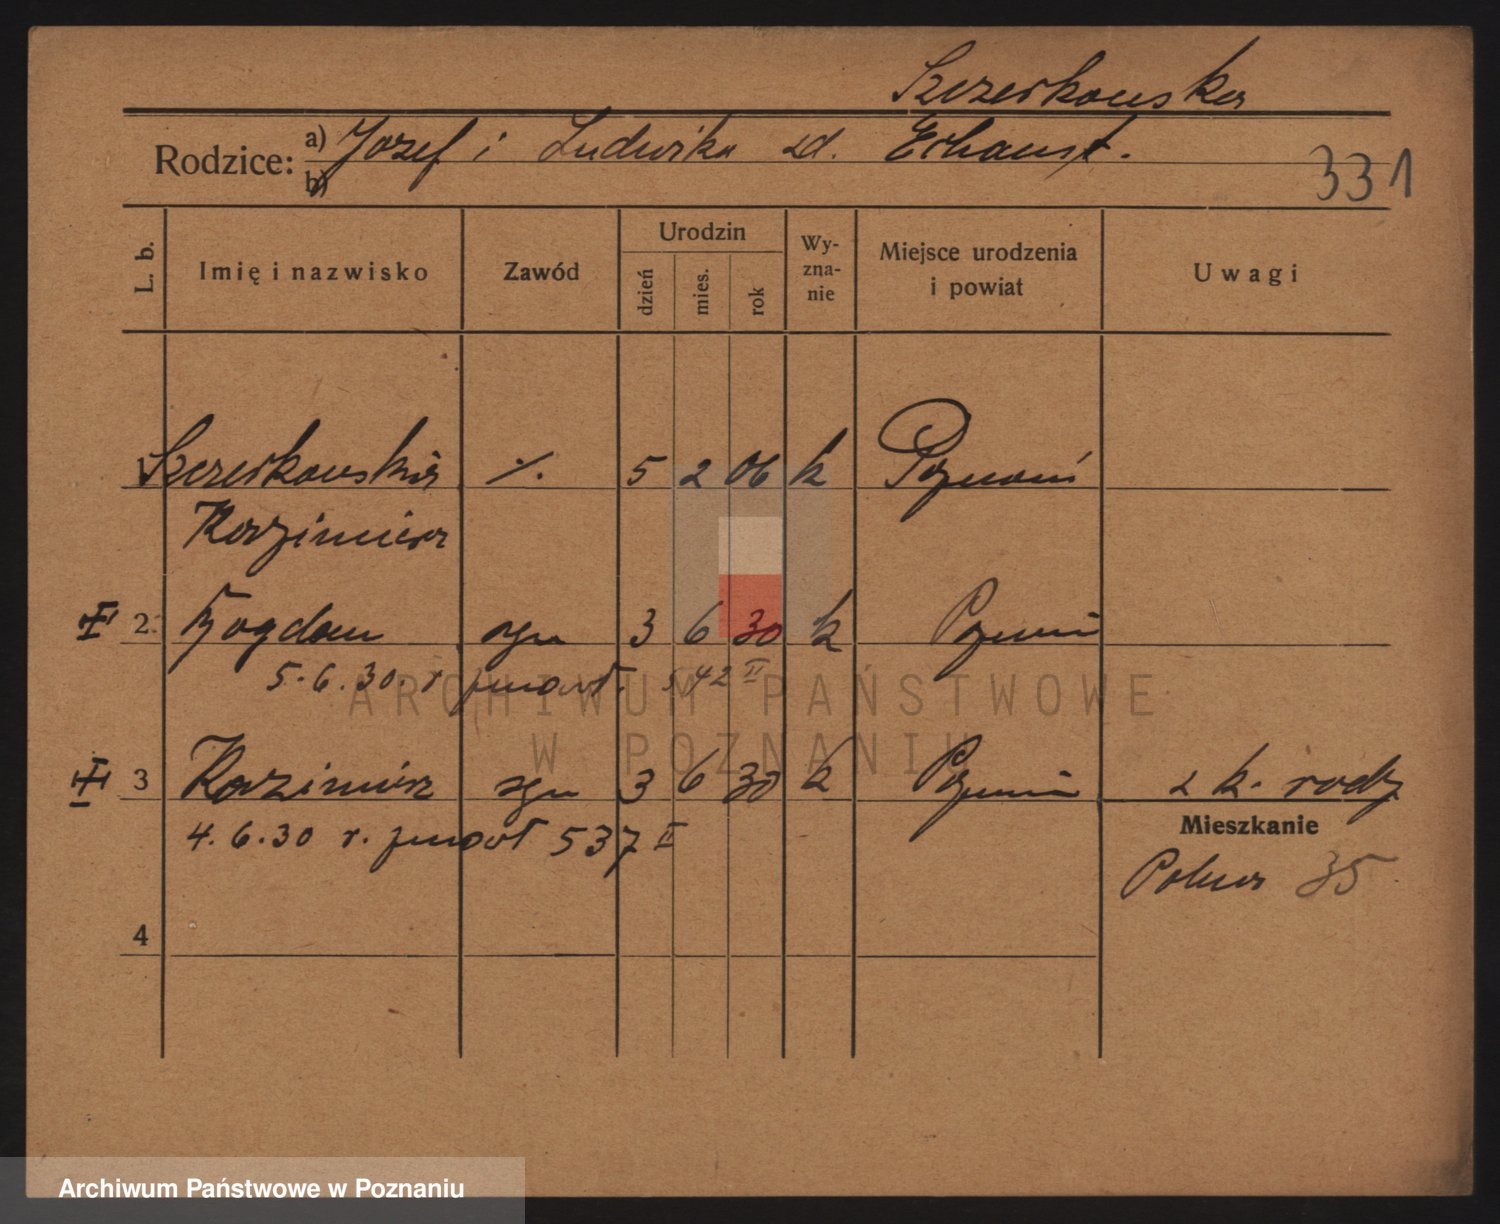 Szczerkowska
Rodzice: a) Józef i Ludwika zd. Erhaust.
b)
331
L. b. Imię i nazwisko Zawód Urodzin dzień mies. rok Wy-zna-nie Miejsce urodzenia i powiat Uwagi
Szczerkowski ./. 5 2 06 k Poznań
Kazimierz
2. Bogdan syn 3 6 30 k Poznań
5.6.30. r zmarł. 542 II
3 Kazimierz syn 3 6 30 k Poznań z k. rodz
Mieszkanie
4.6.30 r. zmarł 537 II
35
4
ARCHIWUM PAŃSTWOWE
W POZNANIU
Archiwum Państwowe w Poznaniu